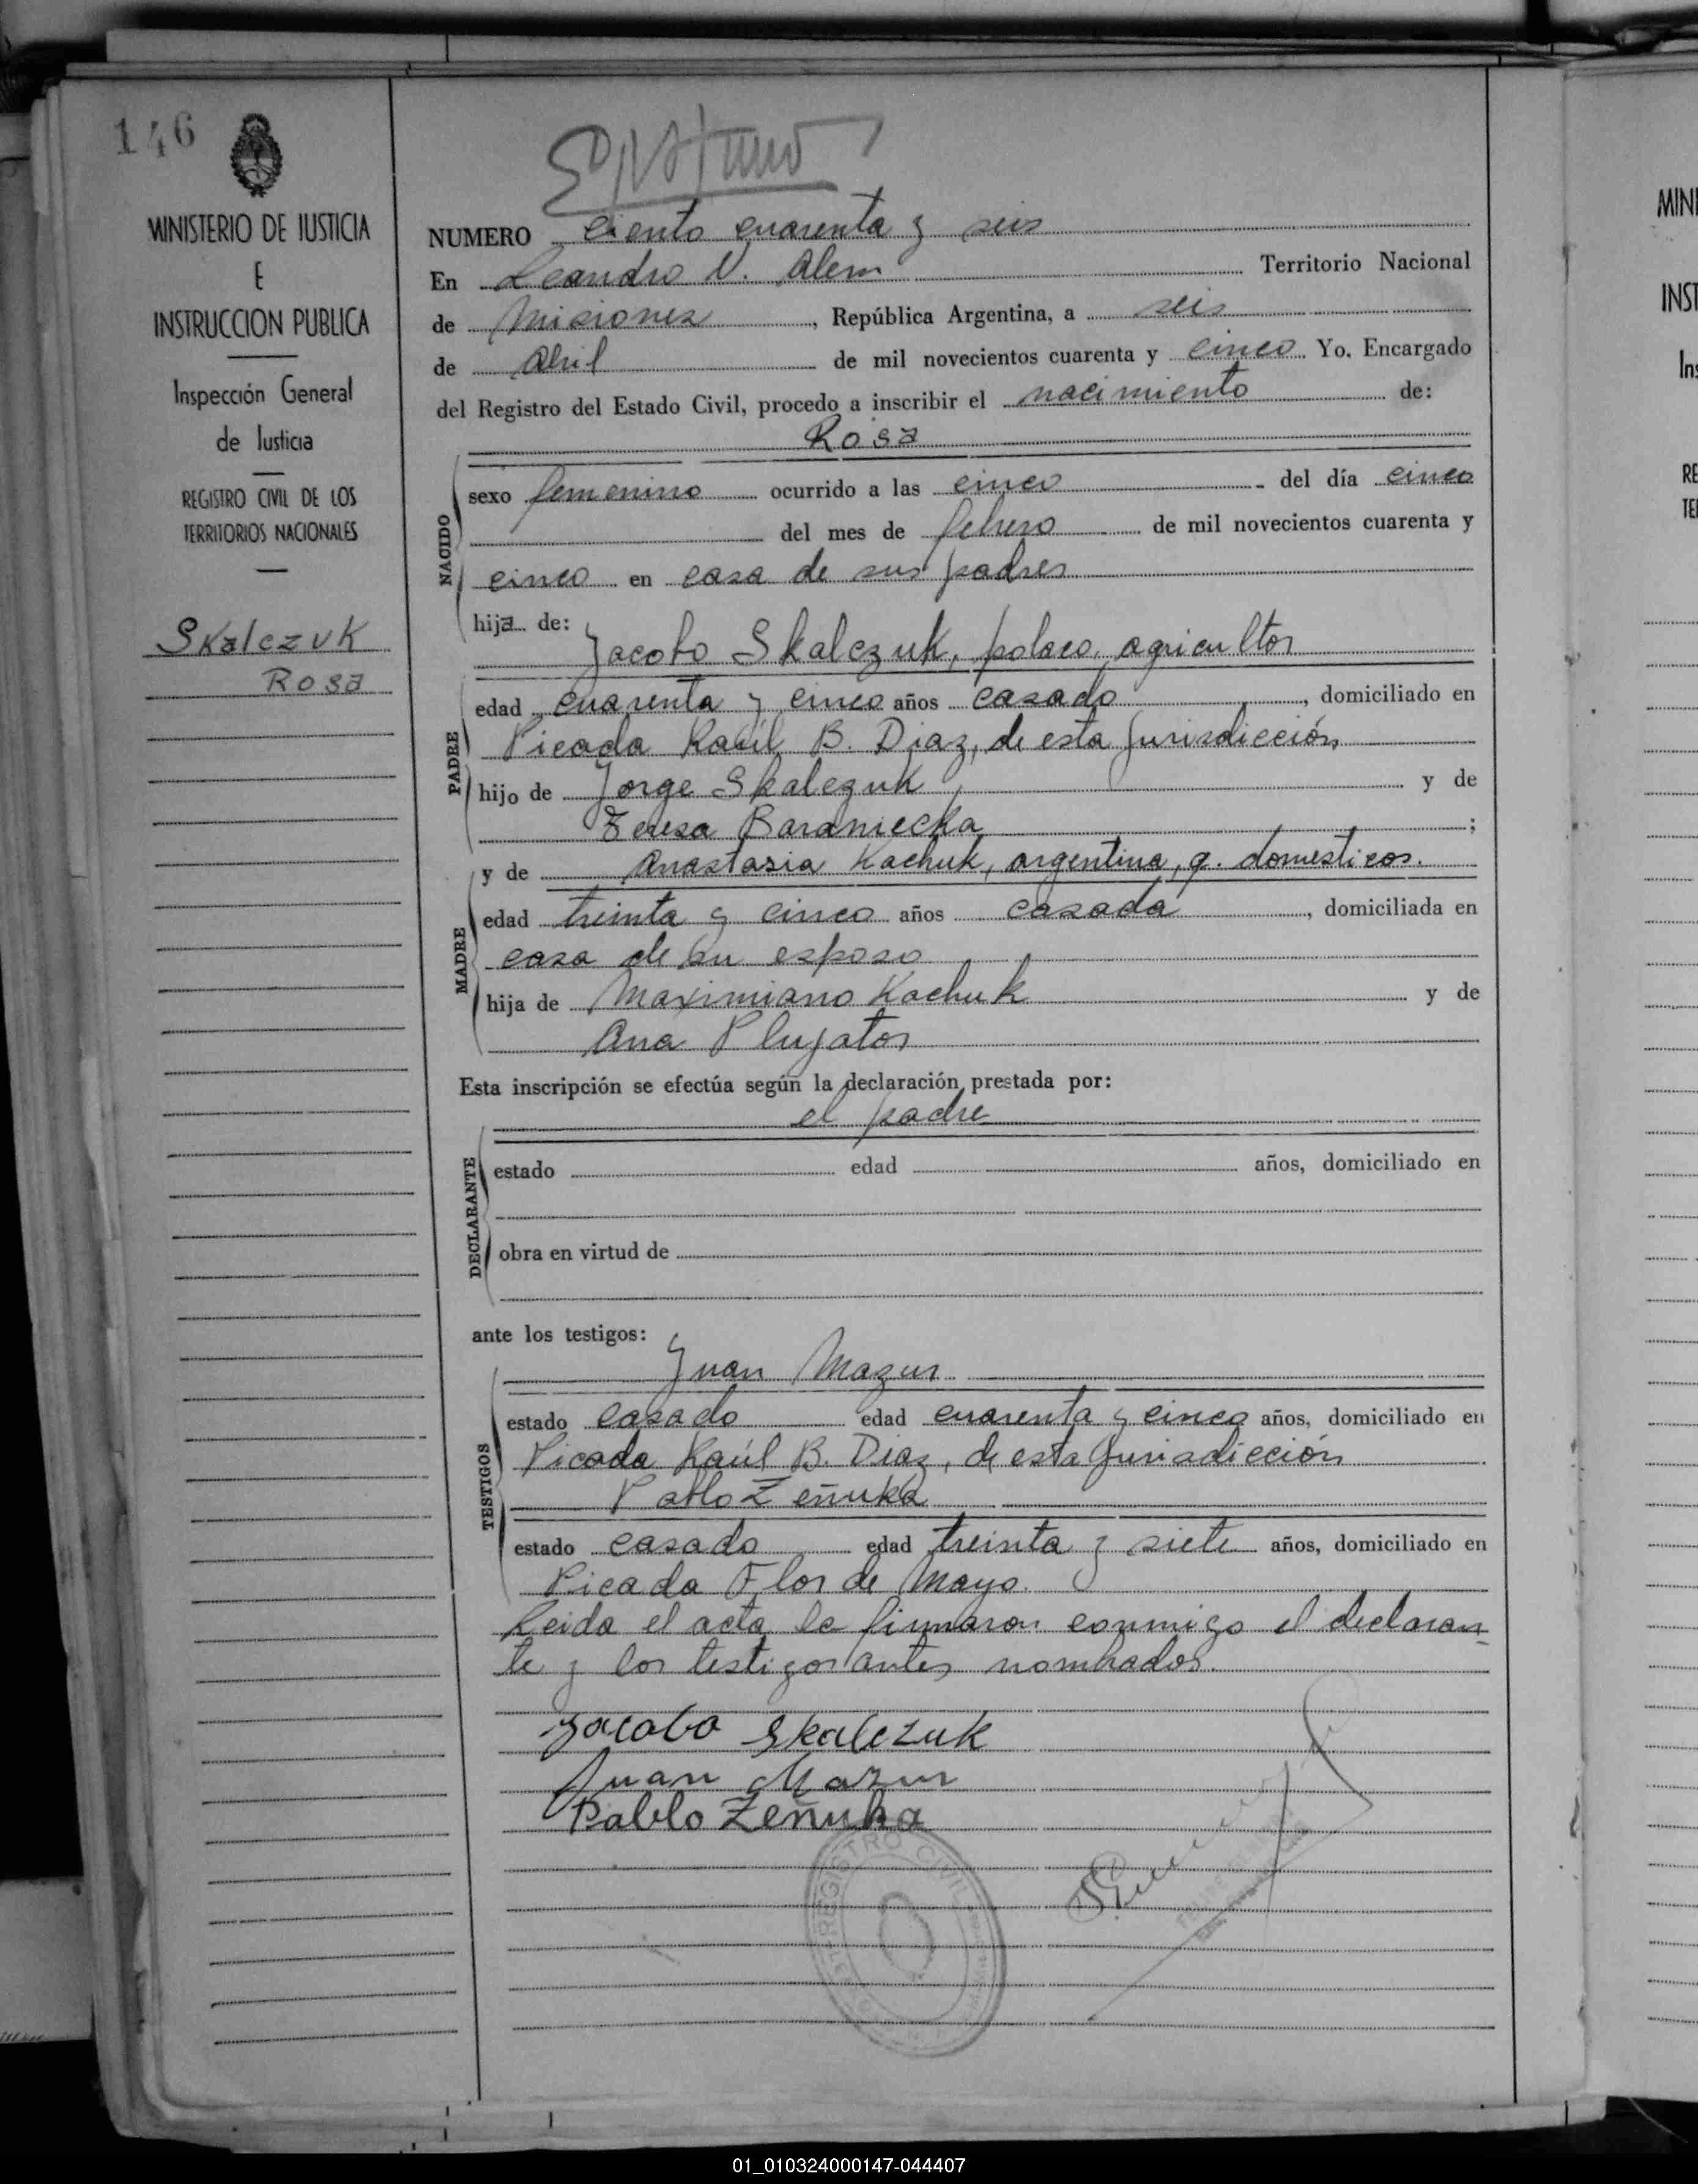 146
MINISTERIO DE JUSTICIA
E
INSTRUCCION PUBLICA
Inspección General
de Justicia
REGISTRO CIVIL DE LOS
TERRITORIOS NACIONALES
Skalczuk
Rosa
NUMERO ciento cuarenta y seis
En Leandro N. Alem Territorio Nacional
de Misiones, República Argentina, a seis
de Abril de mil novecientos cuarenta y cinco Yo. Encargado
del Registro del Estado Civil, procedo a inscribir el nacimiento de:
Rosa
NACIDO
sexo femenino ocurrido a las cinco del día cinco
del mes de febrero de mil novecientos cuarenta y
cinco en casa de sus padres
hija de:
Jacobo Skalczuk, polaco, agricultor
PADRE
edad cuarenta y cinco años casado, domiciliado en
Picada Raúl B. Diaz, de esta Jurisdicción
hijo de Jorge Skalczuk y de
Teresa Baraniecka;
y de Anastasia Kachuk, argentina, q. domesticos.
MADRE
edad treinta y cinco años casada, domiciliada en
casa de su esposo
hija de Maximiano Kachuk y de
Ana Plujator
Esta inscripción se efectúa según la declaración prestada por:
el padre
DECLARANTE
estado edad años, domiciliado en
obra en virtud de
ante los testigos:
Juan Mazur
TESTIGOS
estado casado edad cuarenta y cinco años, domiciliado en
Picada Raúl B. Diaz, de esta Jurisdicción
Pablo Zeñuka
estado casado edad treinta y siete años, domiciliado en
Picada Flor de Mayo.
Leida el acta la firmaron conmigo el declaran-
te y los testigos antes nombrados.
Jacobo Skalczuk
Juan Mazur
Pablo Zeñuka
REGISTRO CIVIL
MINI
INST
In
RE
TE
01_010324000147-044407